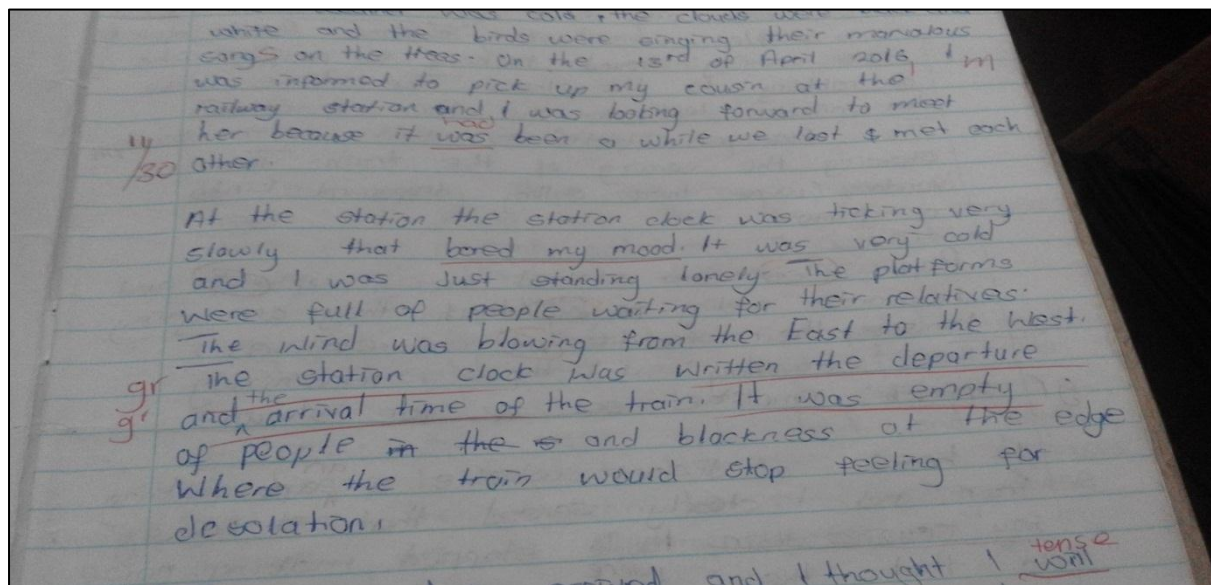 was cold, the clouds were
white and the birds were singing their marvolous
songs on the trees. On the 13rd of April 2016, I'm
was informed to pick up my cousin at the
railway station and I was looking forward to meet
had
her because it was been a while we last met each
11/30 other.
At the station the station clock was ticking very
slowly that bored my mood. It was very cold
and I was Just standing lonely. The platforms
were full of people waiting for their relatives.
The wind was blowing from the East to the West.
gr The station clock was written the departure
gr and the arrival time of the train. It was empty
of people in the and blackness at the edge
Where the train would stop feeling for
desolation.
tense
and I thought I will